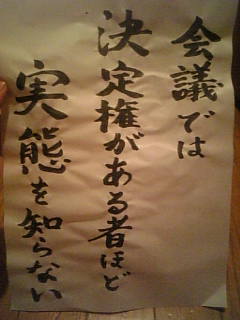 会議では
決定権がある者ほど
実態を知らない